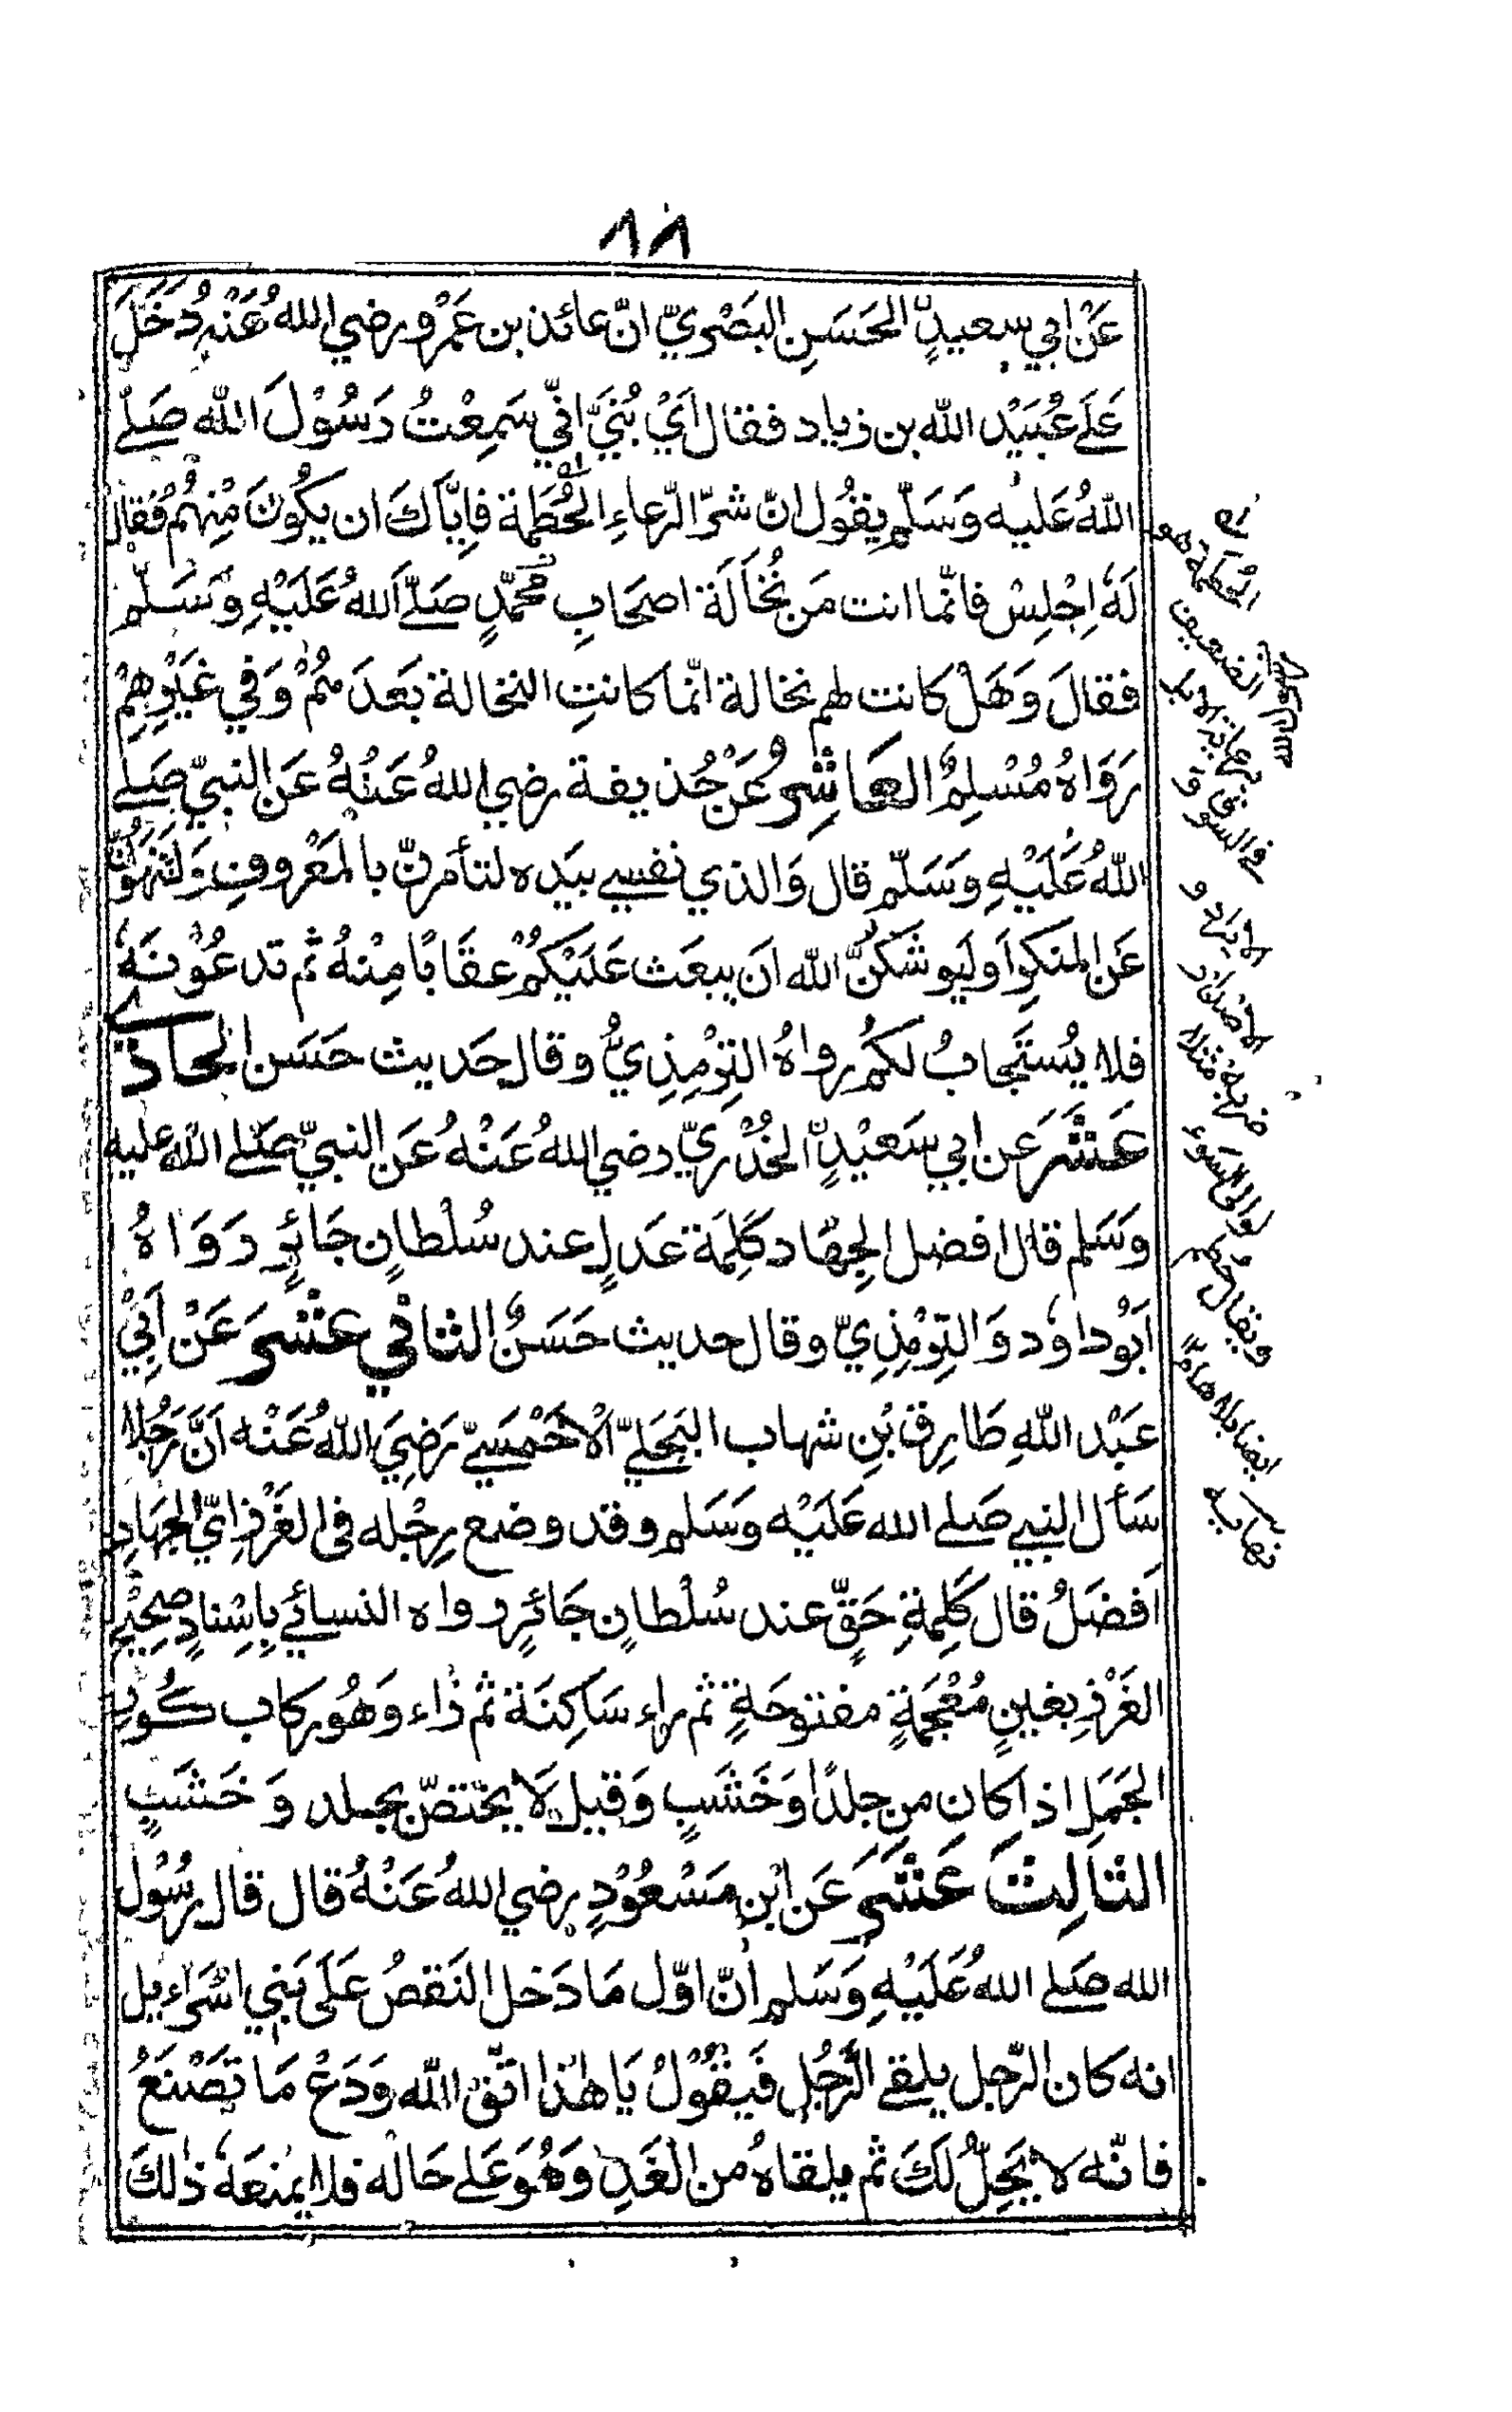 ٨٨
عَنْ ابي سعيدٍ الحَسَنِ البَصْرِيّ انّ عائذ بن عَمْرٍو رضي اللهُ عَنْهُ دَخَلَ
عَلَے عُبَيْد اللّٰه بن زياد فقال اَيْ بُنَيَّ انّي سَمِعْتُ رَسُوْلَ اللّٰه صَلے
اللّٰهُ عَليْه وَسَلّم يقُول انّ شرّ الرّعاءِ الحُطَمة فاِيّاكَ ان يكُونَ مِنْهُمْ فَقال
لَهٗ اِجْلِسْ فانّما انت مَن نُخَالَة اصحَابِ محُمّدٍ صَلَّے اللهُ عَلَيْهِ وَسَلّم
فقالَ وَهَلْ كانت لهم نخالة انّما كانتِ النخالة بَعَدَ هُمْ وَفي غَيْرِهِمْ
رَوَاهُ مُسْلِمٌ العَاشِرُ عَنْ حُذيفة رضي اللهُ عَنْهُ عَن النبيّ صَلے
اللّٰهُ عَلَيْهِ وَسَلّم قال وَالذي نفسے بيَده لتأمرنّ بالمَعْروفِ وَلتنهَوُنّ
عَن المنكرِ اَو ليَوشكَنّ اللّٰه ان يبعَث عَلَيْكُمْ عقَابًا مِنْهُ ثم تدعُوْنَهٗ
فلا يُستَجابُ لكمُ رواهُ التِرْمِذِيُّ وقال حَديث حَسَن الحادي
عَشَر عَن ابي سَعيْدٍ الخُدْرَيّ رضي اللهُ عَنْهُ عَن النبيّ صَلے اللّٰه عليه
وَسَلم قال افضل الجِهَاد كَلِمَة عَدلٍ عند سُلْطانٍ جَائرٍ رَوَاهُ
اَبُوْ داوٗد وَالتِرْمِذِيّ وقال حديث حَسَنٌ الثاني عشر عَنْ اَبِيْ
عَبْد اللّٰهِ طَارِق بْنِ شهاب البَجَليّ الاَحْمَسيّ رَضِيَ اللّٰهُ عَنْه اَنَّ رَجُلا
سَأل النبے صَلے الله عَلَيْه وَسَلم وقد وضع رِجْله في الغَرْزِ ايّ الجهَادِ
اَفضَلُ قال كَلِمةِ حَقٍّ عند سُلْطانٍ جَائرٍ رواه النسائے بِاِسْنادٍ صحِيْح
الغَرْز بغينٍ مُعْجَمَةٍ مفتوحَةٍ ثم راء سَاكِنَة ثم زاء وَهُو ركاب كُورِ
الجَمَلِ اذا كان من جِلدٍ اَو خَشَبٍ وَقيل لا يختصّ بجلد وَخَشَبٍ
الثالِثَ عَشَر عَن ابْن مَسْعُوْدٍ رضي اللهُ عَنْهُ قال قال رسُوْل
الله صَلے اللهُ عَلَيْهِ وَسَلم اَنّ اوّل مَا دَخل النَقصُ عَلَى بَنِي اسْرَاءيل
انه كان الرّجل يلقے الرّجُل فَيقُوْلُ يَا هٰذا اتّق اللّٰه وَدَعْ مَا تَصْنَعُ
فانّه لا يَحِلّ لَكَ ثم يلقاهُ من الغَدِ وَهُوَ عَلے حَاله فلا يمنعَهٗ ذلكَ
الحُطمة هو
الضعيف
برعاية الابل
في السوق و
الايراد و
الاصدار
ضربه مثلا
لوالى السوء
ويقال حطم
ايضا بلا هاء
نهاية